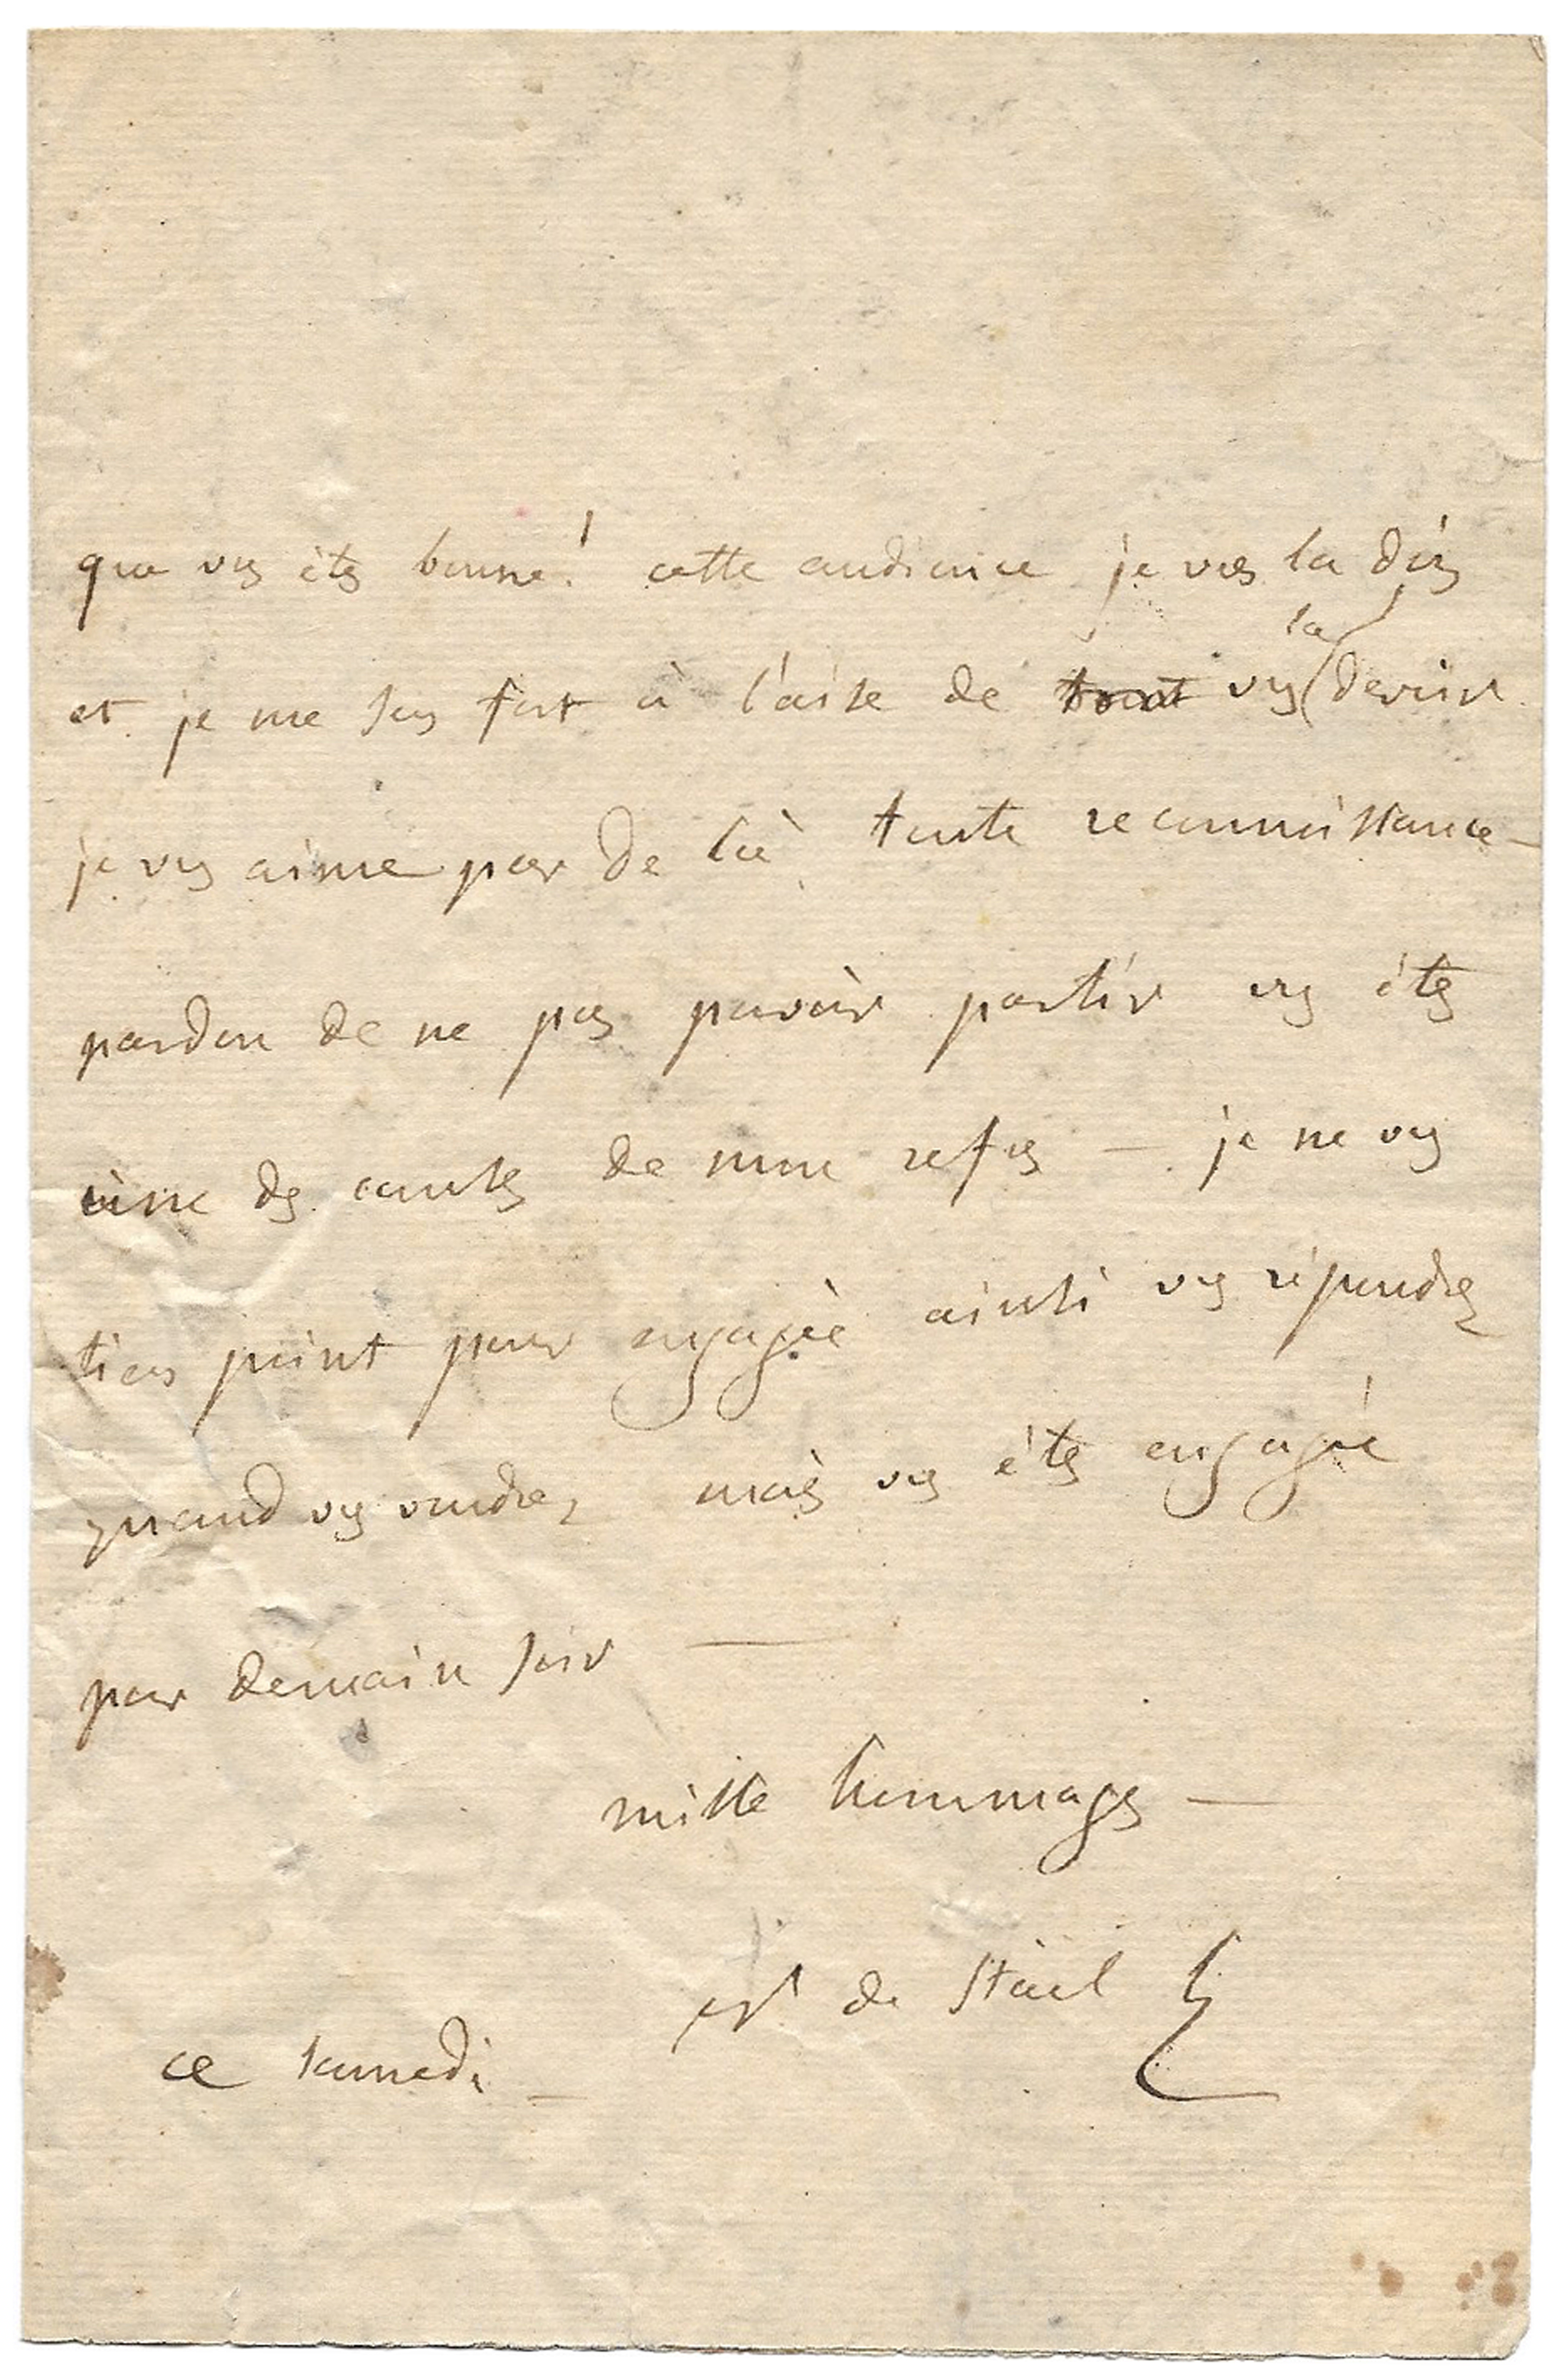 que vs êtes bonne! cette audience je vous la dois
et je me sens fort à l'aise de tout vs la devoir
je vs aime par de là toute reconnoissance —
pardon de ne pas pouvoir partir vs êtes
une des causes de mon refus — je ne vs
tiens point pour engagée ainsi vs répondrez
quand vs voudrez mais vs êtes engagée
pour demain soir —
mille hommages —
de Stael
ce samedi —